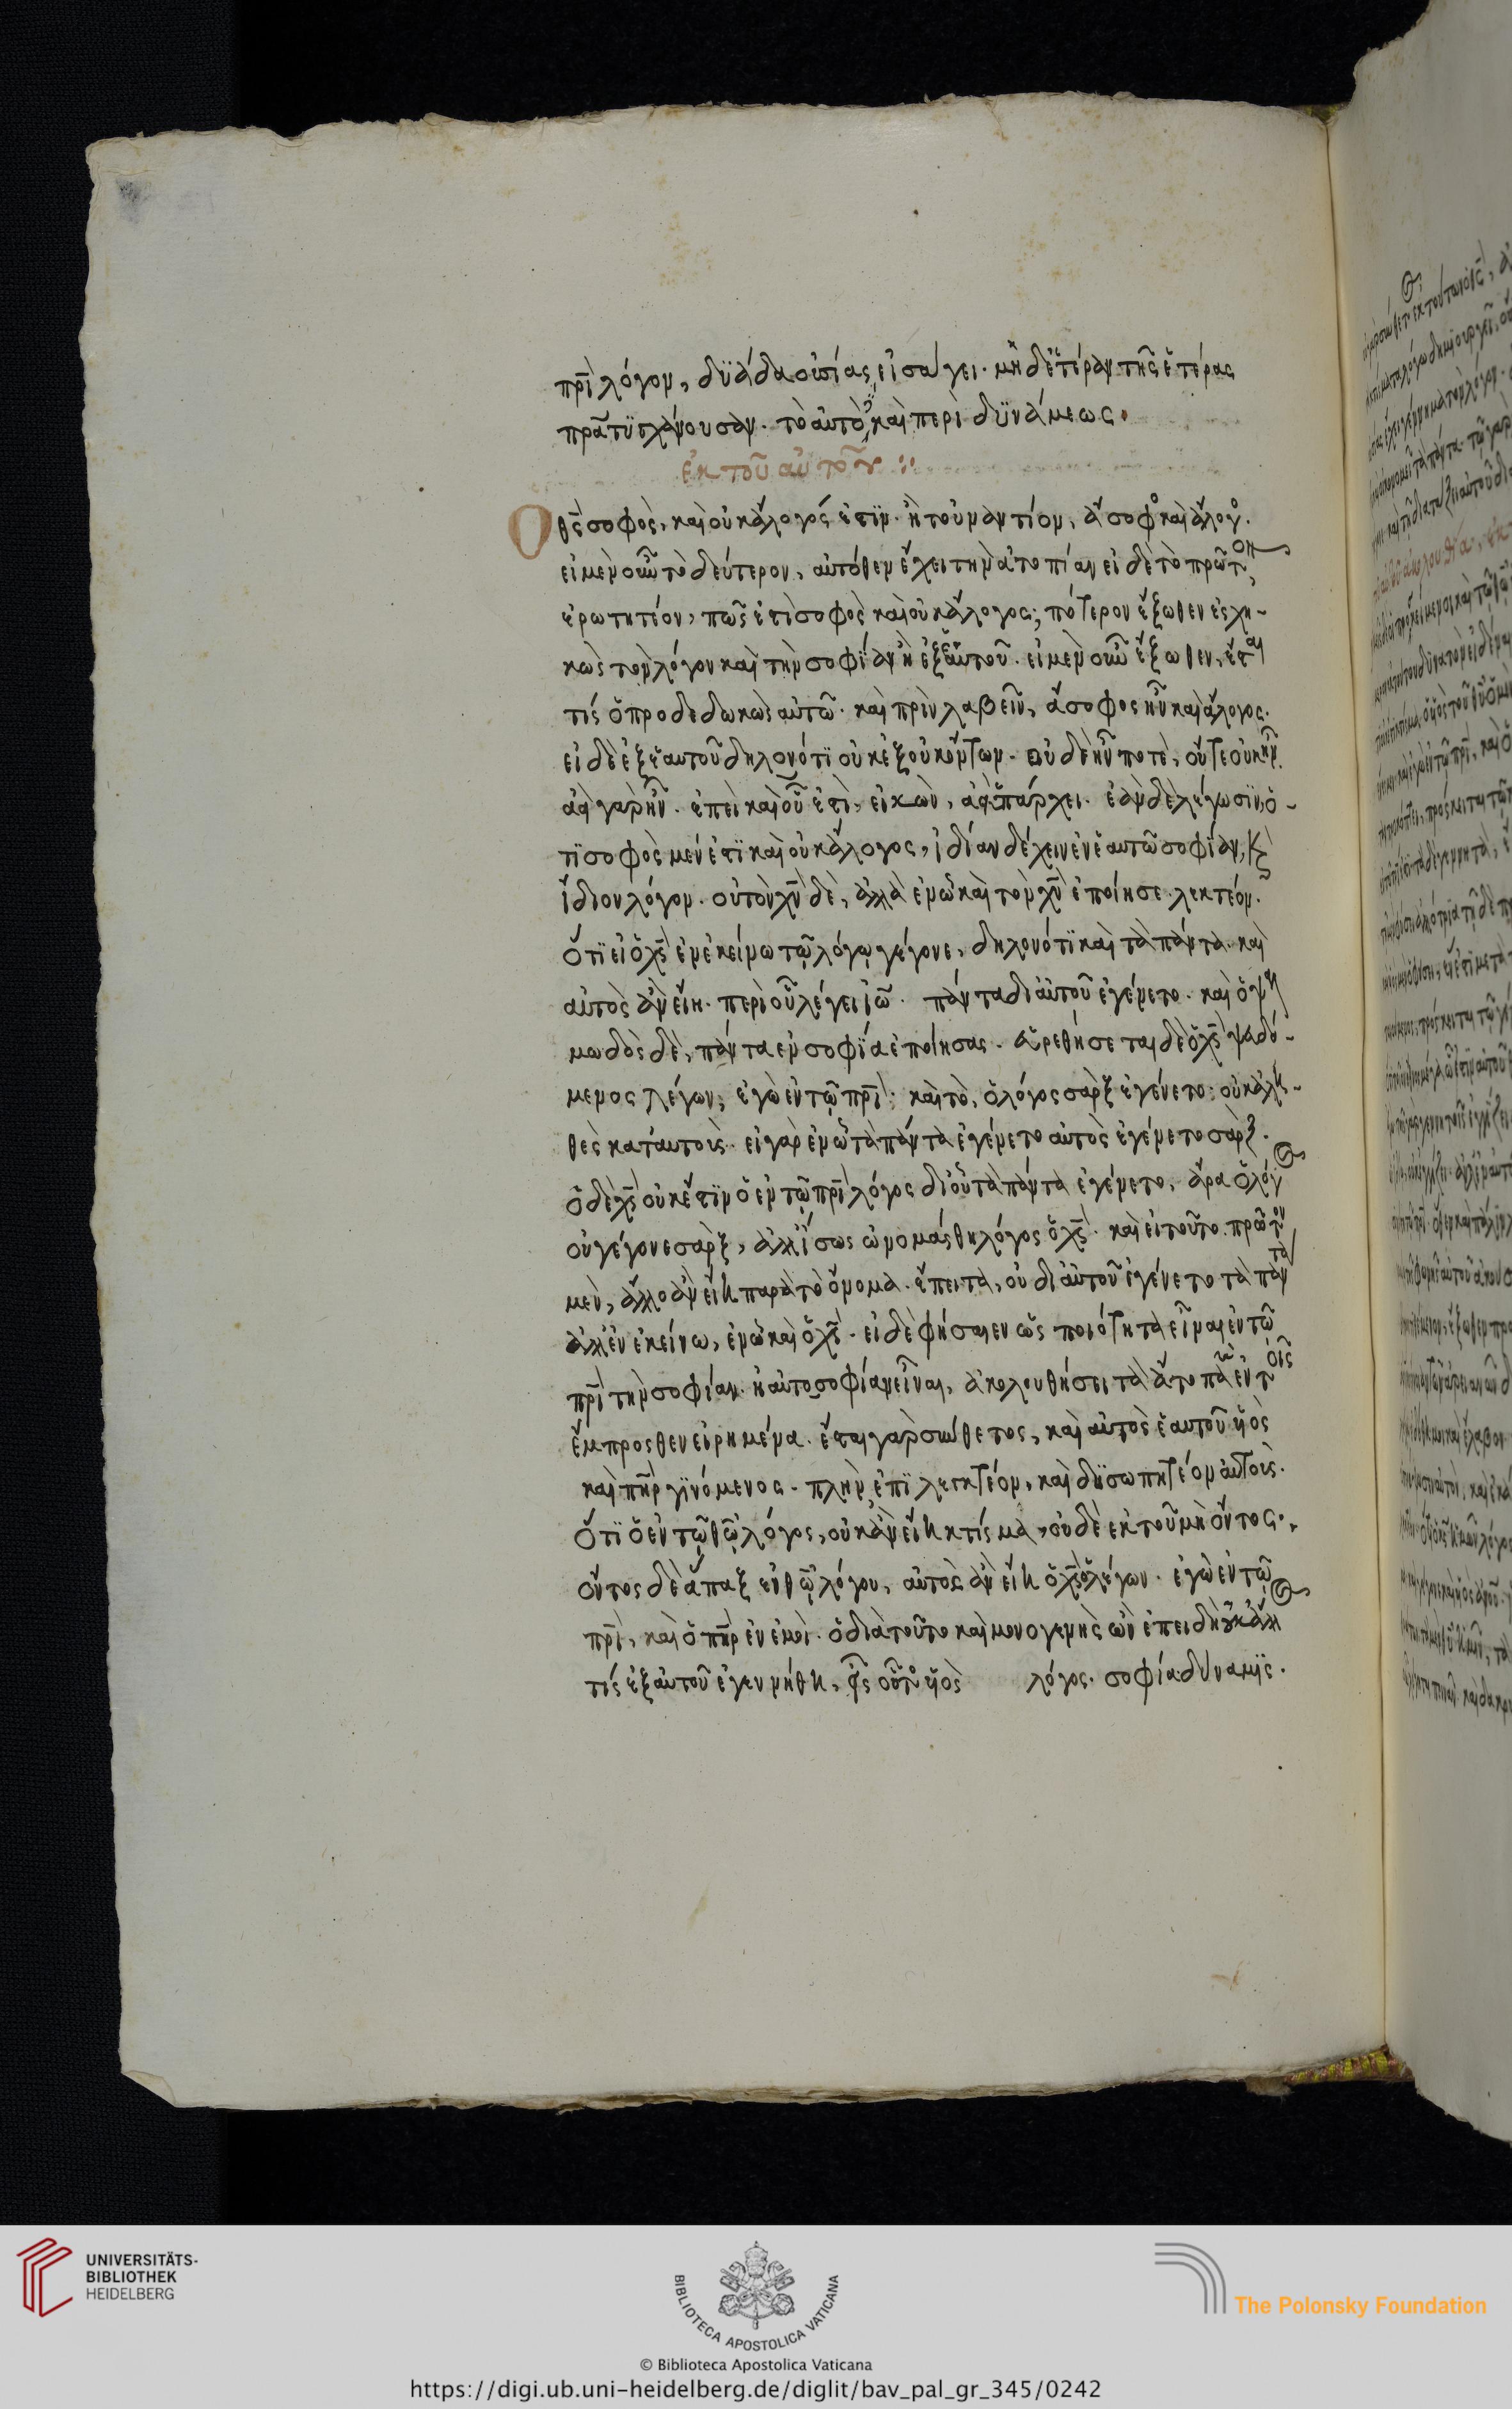 πρῒ λόγον, δϋάδα οὐσίας εἰσάγει. μὴ δἑτέραν τῆς ἑτέρας
πρᾶ τϋγχάνουσαν. τὸ αὐτὸ καὶ περὶ δϋνάμεως.
ἐκ τοῦ αὐτοῦ ::
Ο θς̄ σοφὸς, καὶ οὐκ ἄλογός ἐστϊν. ἢ τοὐναντίον, ἄσοφος καὶ ἄλογος.
εἰ μὲν οὖν τὸ δεύτερον, αὐτόθεν ἔχει τὴν ἀτοπίαν εἰ δὲ τὸ πρῶτον,
ἐρωτητέον, πῶς ἐστὶ σοφὸς καὶ οὐκ ἄλογος; πότερον ἔξωθεν ἐσχη-
κὼς τὸν λόγον καὶ τὴν σοφΐαν ἢ ἐξ ἑαυτοῦ. εἰ μὲν οὖν ἔξωθεν, ἔσται
τίς ὁ προδεδωκὼς αὐτῶ. καὶ πρὶν λαβεῖν, ἄσοφος ἦν καὶ ἄλογος.
εἰ δὲ ἐξ ἑαυτοῦ δηλονότϊ οὐκ ἐξ οὐκ ὄντων. οὐδὲ ἦν ποτὲ, ὅτε οὐκ ἦν
ἀεὶ γὰρ ἦν. ἐπεὶ καὶ οὗ ἐστὶ, εἰκὼν, ἀεὶ ὑπάρχει. ἐὰν δὲ λέγωσϊν, ὅ-
τϊ σοφὸς μέν ἐστϊ καὶ οὐκ ἄλογος, ἰδίαν δ' ἔχειν ἐν ἑαυτῶ σοφΐαν, κ
ἴδιον λόγον. οὐ τὸν χν̄ δὲ, ἀλλὰ ἐν ὧ καὶ τὸν χν̄ ἐποίησε. λεκτέον.
ὅτϊ εἰ ὁ χς̄ ἐν ἐκείνω τῶ λόγω γέγονε, δηλονότϊ καὶ τὰ πάντα. καὶ
αὐτὸς ἂν εἴη. περὶ οὗ λέγει ἰω̄. πάντα δι αὐτοῦ ἐγένετο. καὶ ὁ ψαλ
μωδὸς δὲ, πάντα ἐν σοφία ἐποίησας. εὑρεθήσεται δὲ ὁ χς̄ ψευδό-
μενος λέγων; ἐγὼ ἐν τῶ πρῒ. καὶ τὸ, ὁ λόγος σὰρξ ἐγένετο: οὐκ ἀλη-
θὲς κατ' αυτοὺς. εἰ γὰρ ἐν ὧ τὰ πάντα ἐγένετο αὐτὸς ἐγένετο σὰρξ.
ὁ δὲ χς̄ οὐκ ἔστϊν ὁ ἐν τῶ πρῒ λόγος δι οὗ τὰ πάντα ἐγένετο, ἄρα ὁ λόγος
οὐ γέγονε σὰρξ, ἀλλ' ἴσως ὠνομάσθη λόγος ὁ χς̄. καὶ εἰ τοῦτο. πρῶτον
μὲν, ἄλλο ἂν εἴη παρὰ τὸ ὄνομα. ἔπειτα, οὐ δι αὐτοῦ ἐγένετο τὰ πάντα
ἀλλ' ἐν ἐκείνω, ἐν ὧ καὶ ὁ χς̄. εἰ δὲ φήσαιεν ὡς ποιότητα εἶναι ἐν τῶ
πρῒ τὴν σοφίαν. ἢ αὐτοσοφίαν εἶναι, ἀκολουθήσει τὰ ἄτοπα ἐν τοῖς
ἔμπροσθεν εἰρημένα. ἔσται γὰρ σύνθετος, καὶ αὐτὸς ἑαυτοῦ υἱὸς
καὶ πηρ̄ γϊνόμενος. πλὴν ἐπϊλεκτέον, καὶ δϋσωπητέον αὐτοὺς.
ὅτϊ ὁ ἐν τῶ θω̄ λόγος, οὐκ ἂν εἴη κτίσμα, οὐδὲ ἐκ τοῦ μὴ ὄντος.
ὄντος δὲ ἅπαξ ἐν θω̄ λόγου, αὐτὸς ἂν εἴη ὁ χς̄ ὁ λέγων. ἐγὼ ἐν τῶ
πρῒ, καὶ ὁ πηρ̄ ἐν ἐμοὶ. ὁ διὰ τοῦτο καὶ μονογενὴς ὢν ἐπειδὴ οὐκ ἄλλος
τίς ἐξ αὐτοῦ ἐγεννήθη, εἷς οὗτος υἱὸς λόγος. σοφία δύναμϊς.